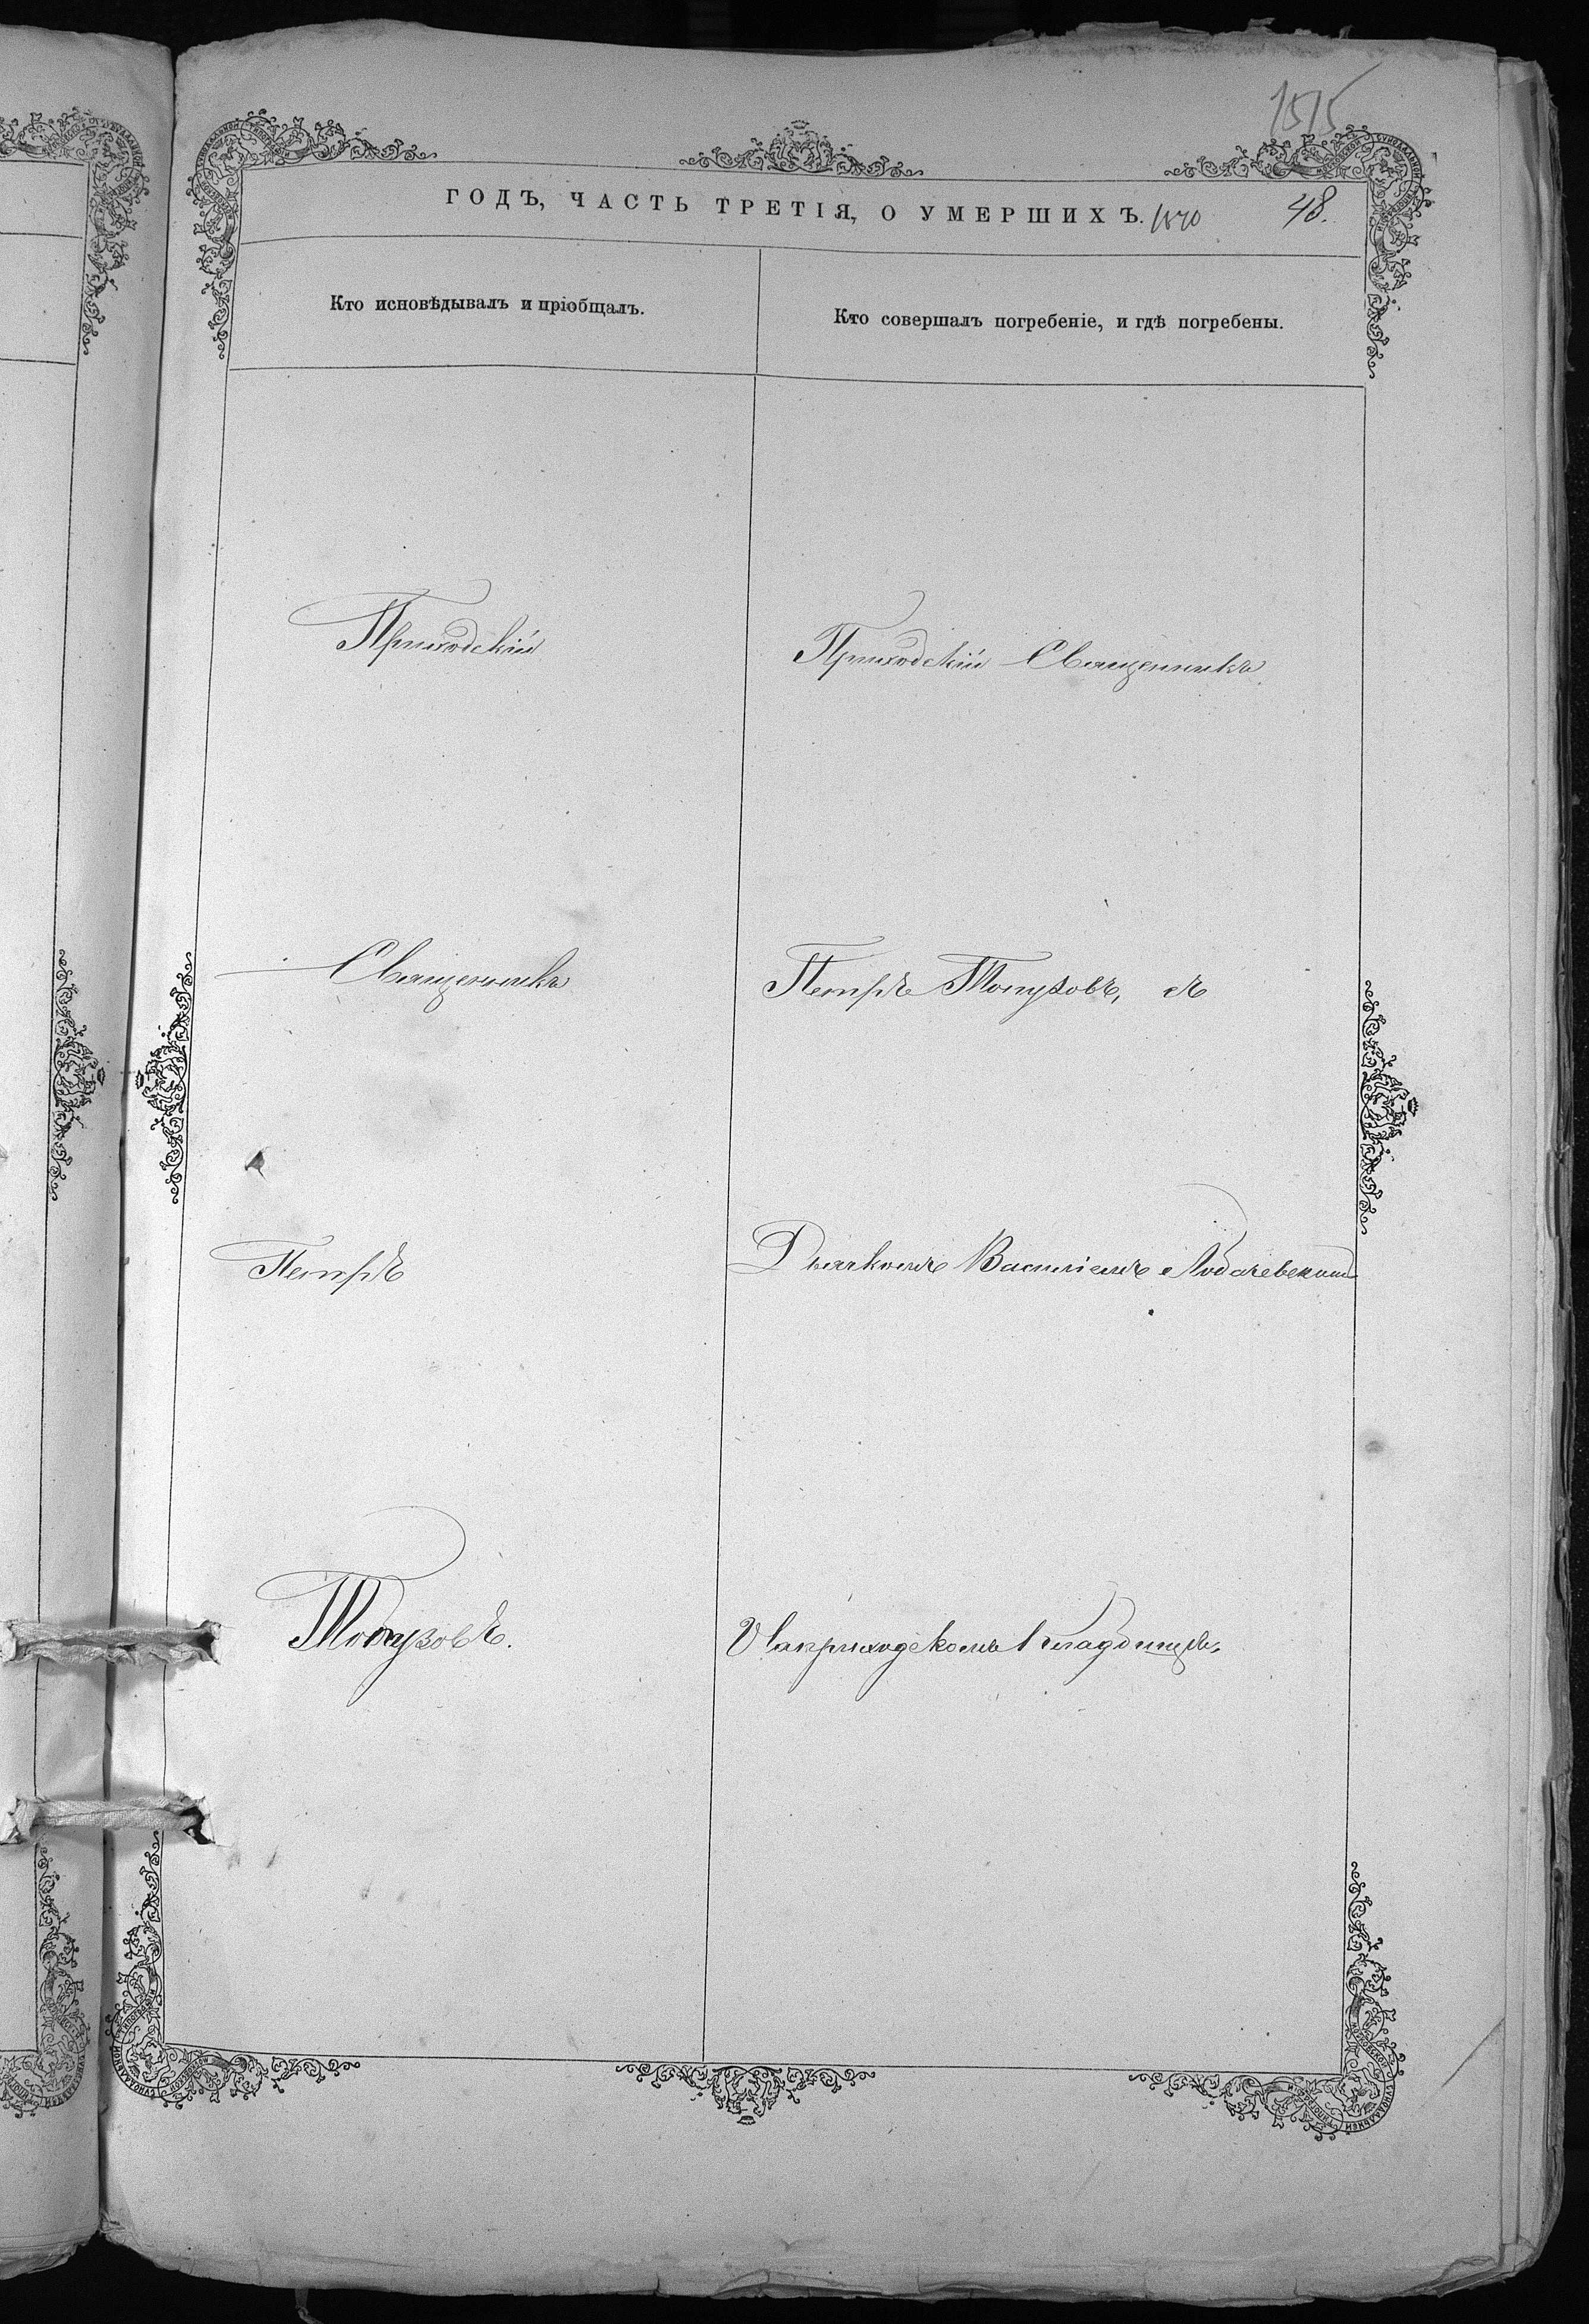 1515
ГОДЪ, ЧАСТЬ ТРЕТІЯ, О УМЕРШИХЪ. 1870 48.
Кто исповѣдывалъ и пріобщалъ.
Кто совершалъ погребеніе, и гдѣ погребены.
Приходскій
Священникъ
Петръ
Топузовъ.
Приходскій Священникъ
Петръ Топузовъ, съ
Дьячкомъ Василіемъ Лобачевским
На приходскомъ кладбищѣ,